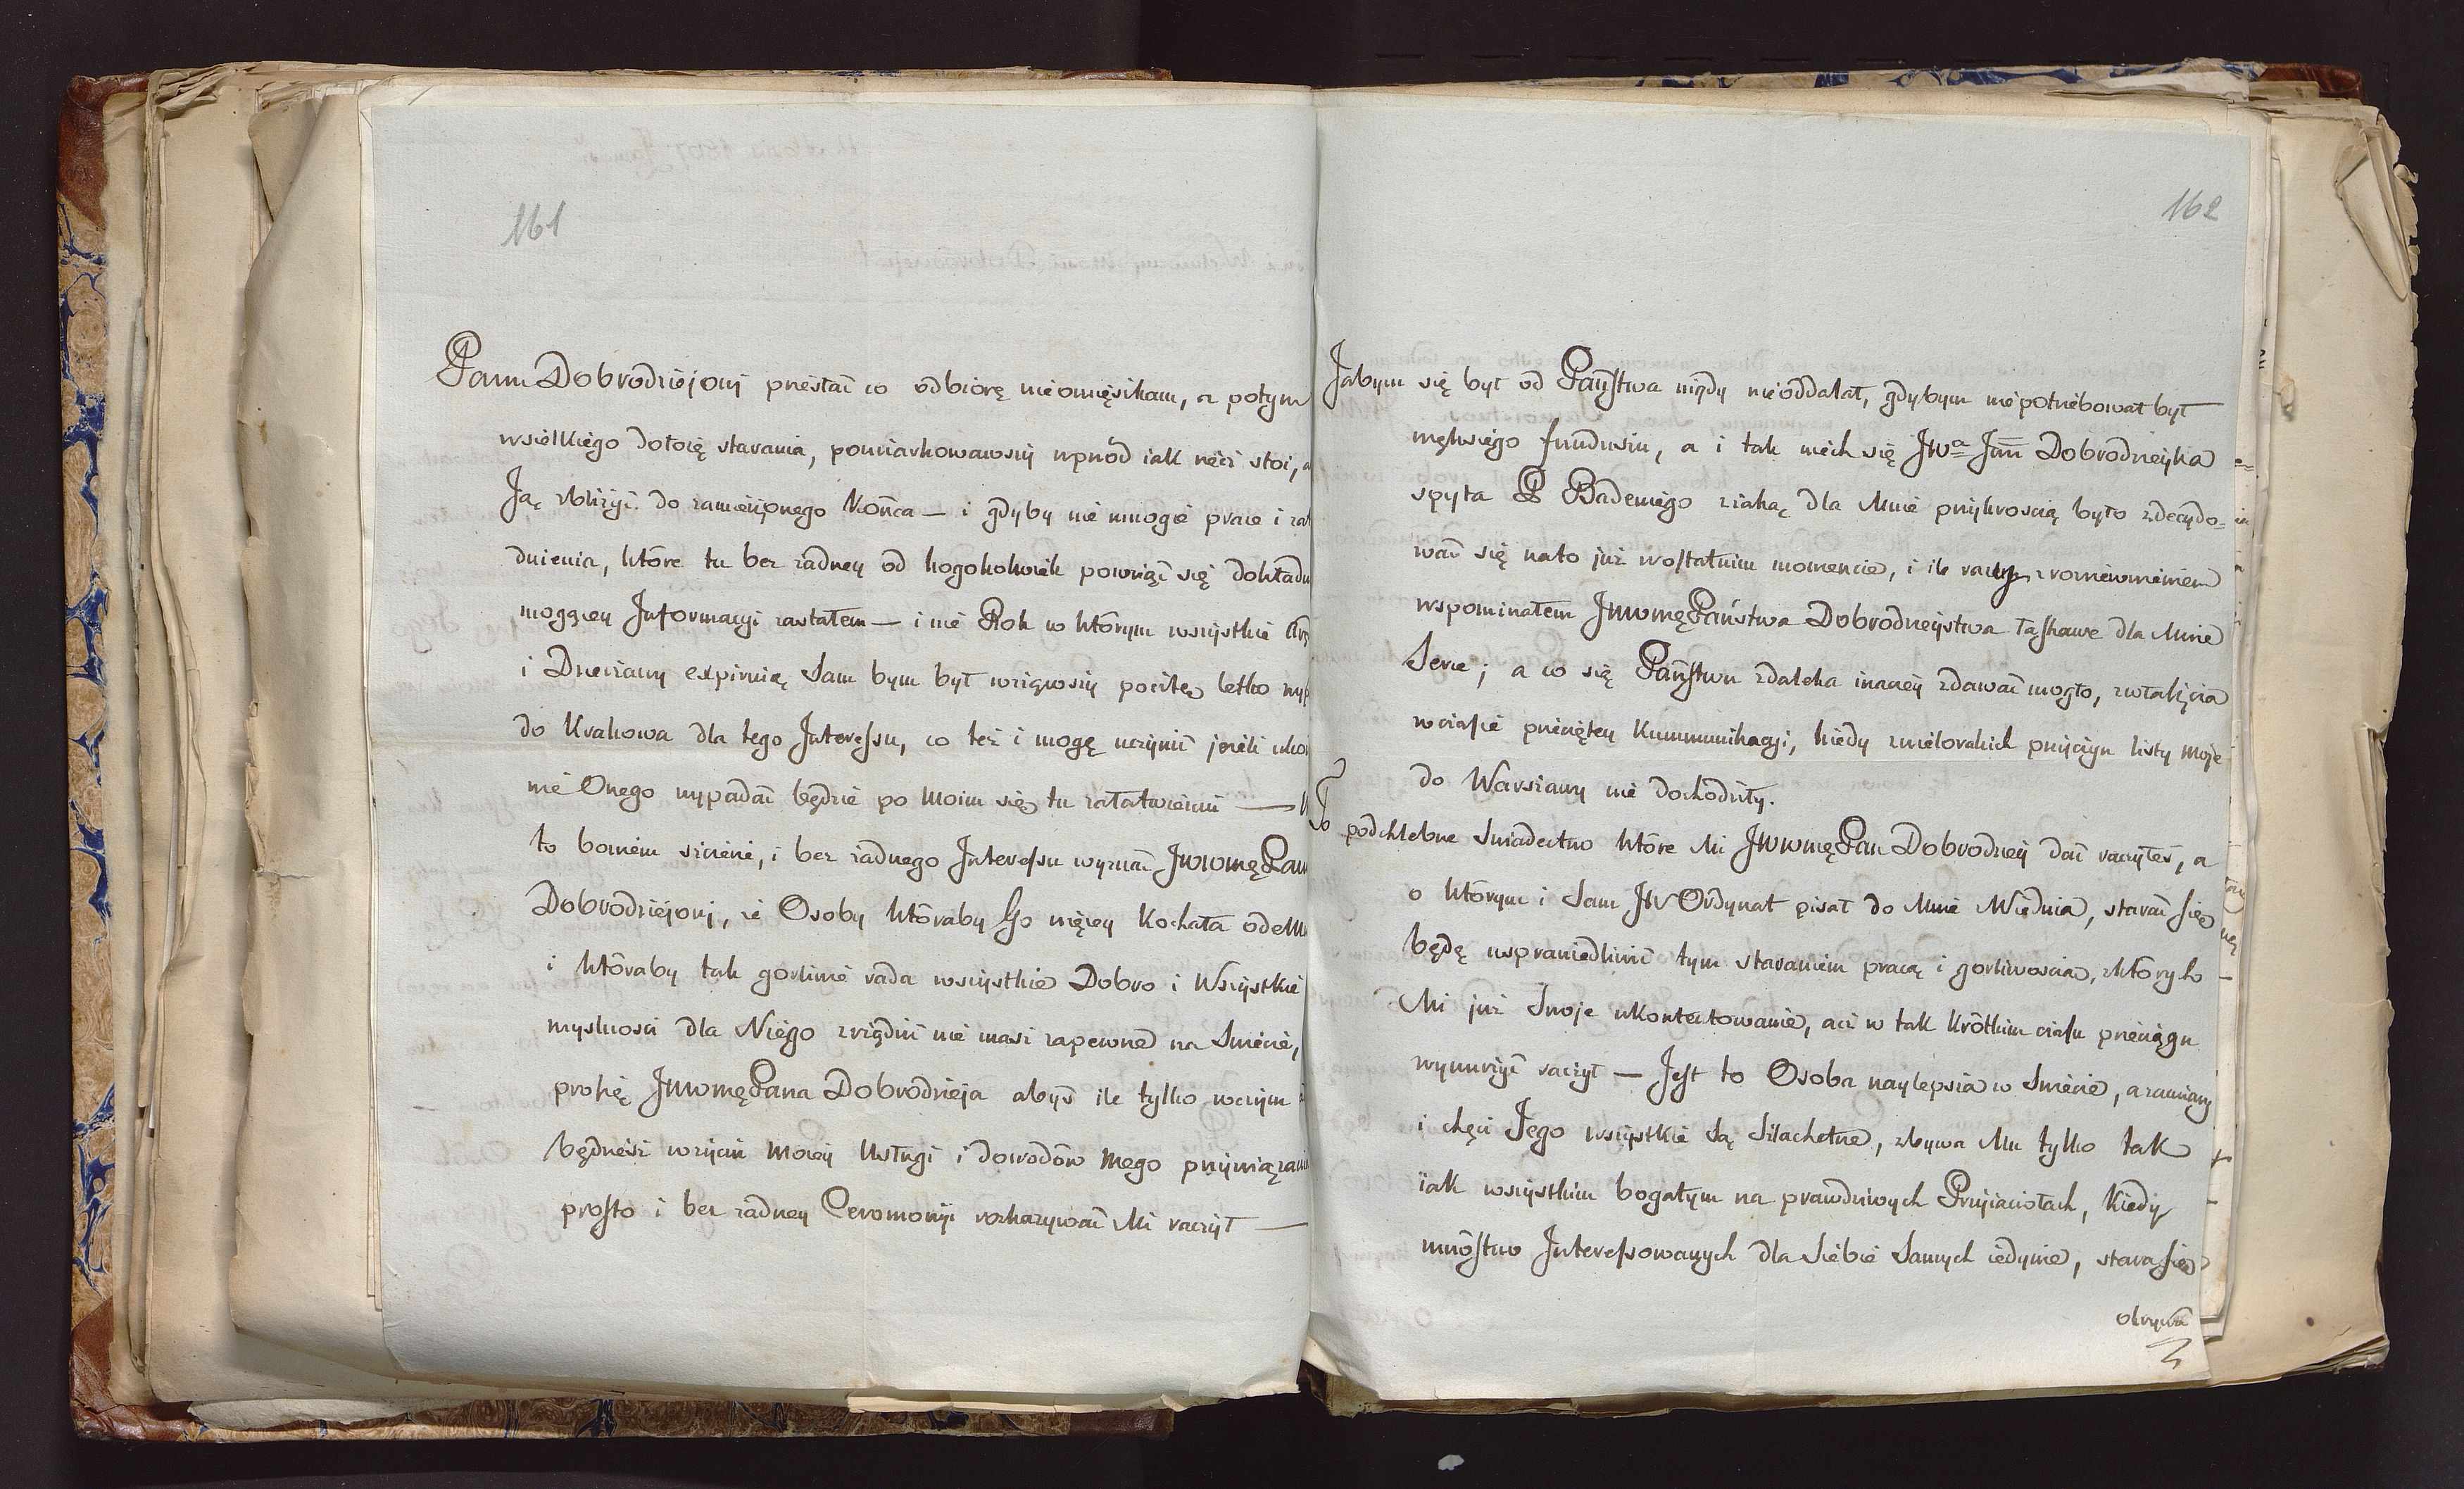 161
Panu Dobrodziejowi przesłać co odbiorę nieomięszkam, a potym
wszelkiego dołożę starania, pomiarkowawszy wprzód iak rzeci stoi,
Ją zbliżyć do zamierzonego Końca — i gdyby nie mnogie prace i zat
dnienia, które tu bez żadney od kogokolwiek powziąść się dokładn
mogącey Informacyi zastałem — i nie Rok w którym wszystkie
i Dzierżawy expiruią Sam bym był wziąwszy pocztę letko
do Krakowa dla tego Interessu, co też i mogę uczynić jeżeli
nie Onego wypadać będzie po Moim się tu załatwieniu —
to bowiem szczerze, i bez żadnego Interessu wyznać JWWMęPan
Dobrodziejowi, że Osoby któraby Go więcey Kochała odeMn
i któraby tak gorliwie rada wszystkie Dobro i Wszystkie
myslności dla Niego zrządzić nie masz zapewne na Swiecie,
proszę JWWMęPana Dobrodzieja abyś ile tylko w czym
będziesz w życiu Mojey Usługi i dowodów Mego przywiązania
prosto i bez żadney Ceromonyi rozkazywać Mi raczył —
162
Jabym się był od Państwa nigdy nieoddalał, gdybym niepotrzebował był
większego funduszu, a i tak niech się JWa Jan Dobrodzieyka
spyta P Badeniego z iaką dla Mnie przykroscią było zdecydo-
wać się na to już w ostatnim momencie, i ile razy z rozrzewnieniem
wspominałem JWWMęPaństwa Dobrodzieystwa łaskawe dla Mnie
Serce; a co się Państwu zdaleka inaczey zdawać mogło, zwłaszcza
w czasie przeciętey Kummunikacyi, kiedy z wielorakich przyczyn listy moje
do Warszawy nie dochodziły.
To podchlebne Swiadectwo które Mi JWWMęPan Dobrodziey dać raczyłeś, a
o którym i Sam JW Ordynat pisał do Mnie z Wiednia, starać się
będę usprawiedliwić tym staraniem pracą i gorliwoscią, z których
Mi już Swoje ukontentowanie, acz w tak krótkim czasu przeciągu
wynurzyć raczył — Jest to Osoba naylepsza w Swiecie, a zamiary
i chęci Jego wszystkie są Szlachetne, zbywa Mu tylko tak
iak wszystkim bogatym na prawdziwych Przyiaciołach, kiedy
mnóstwo Interessowanych dla Siebie Samych iedynie, stara się
okrywa